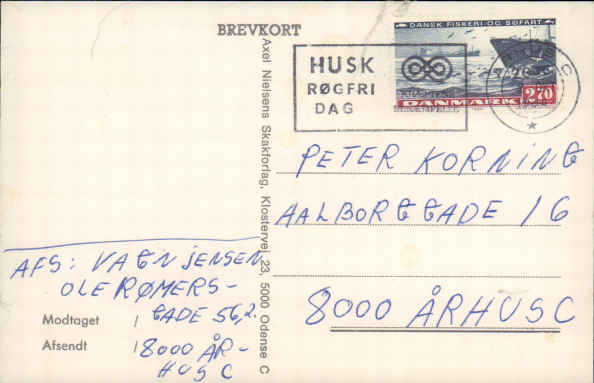 BREVKORT
DANSK FISKERI OG SØFART
DANMARK 2.70
HUSK
RØGFRI
DAG
Axel Nielsens Skakforlag, Klostervej 23, 5000 Odense C
PETER KORNING
AALBORGGADE 16
8000 ÅRHUS C
AFS: VAGN JENSEN
OLE RØMERS-
GADE 56, 2.
Modtaget /
Afsendt /
8000 ÅR-
HUS C